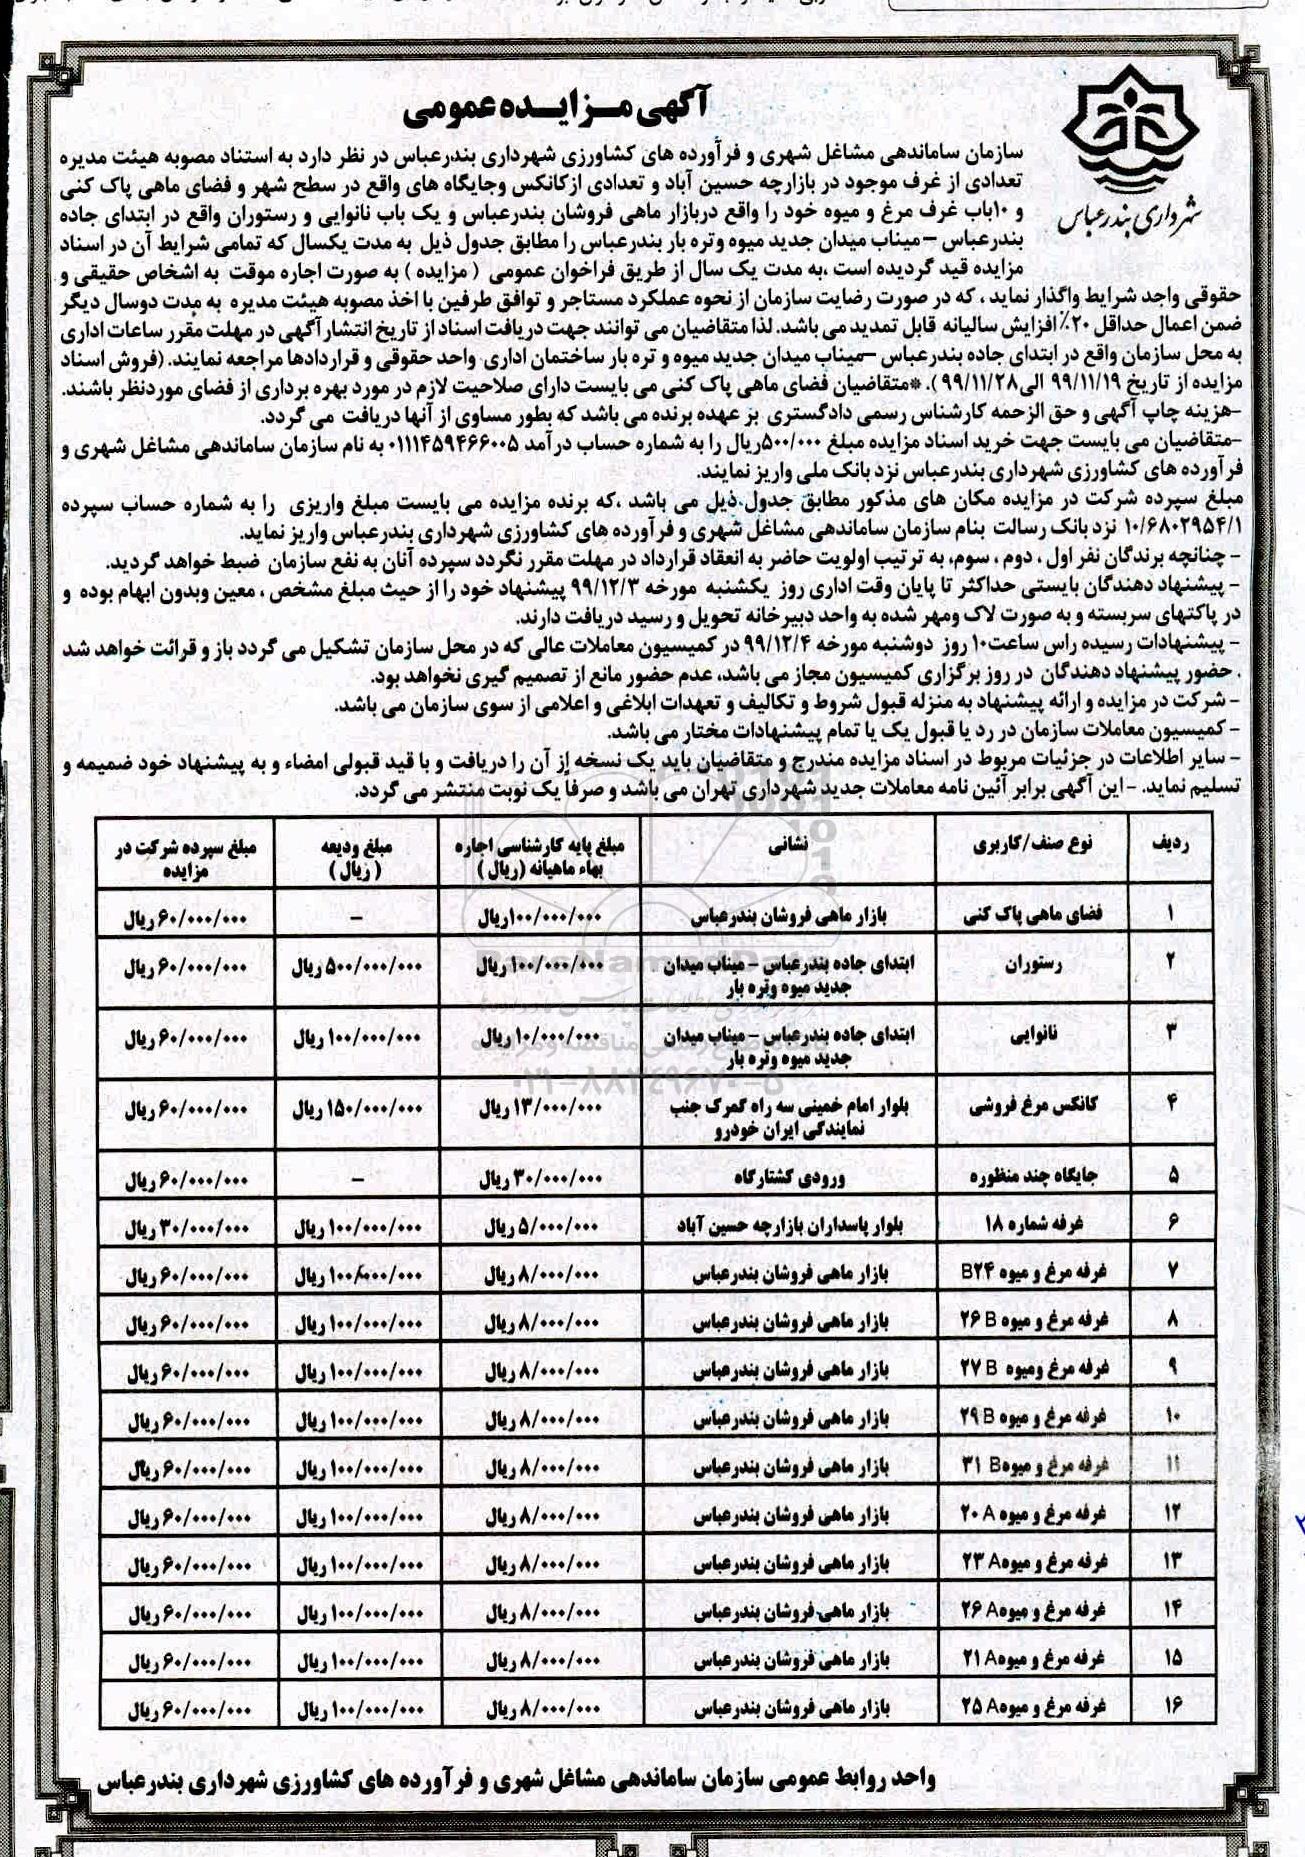 آگهی مـزایـده عمومی
شهرداری بندرعباس
سازمان ساماندهی مشاغل شهری و فرآورده های کشاورزی شهرداری بندرعباس در نظر دارد به استناد مصوبه هیئت مدیره
تعدادی از غرف موجود در بازارچه حسین آباد و تعدادی ازکانکس وجایگاه های واقع در سطح شهر و فضای ماهی پاک کنی
و ۱۰باب غرف مرغ و میوه خود را واقع دربازار ماهی فروشان بندرعباس و یک باب نانوایی و رستوران واقع در ابتدای جاده
بندرعباس –میناب میدان جدید میوه وتره بار بندرعباس را مطابق جدول ذیل به مدت یکسال که تمامی شرایط آن در اسناد
مزایده قید گردیده است ،به مدت یک سال از طریق فراخوان عمومی ( مزایده ) به صورت اجاره موقت به اشخاص حقیقی و
حقوقی واجد شرایط واگذار نماید ، که در صورت رضایت سازمان از نحوه عملکرد مستاجر و توافق طرفین با اخذ مصوبه هیئت مدیره به مدت دوسال دیگر
ضمن اعمال حداقل ۲۰٪ افزایش سالیانه قابل تمدید می باشد. لذا متقاضیان می توانند جهت دریافت اسناد از تاریخ انتشار آگهی در مهلت مقرر ساعات اداری
به محل سازمان واقع در ابتدای جاده بندرعباس –میناب میدان جدید میوه و تره بار ساختمان اداری واحد حقوقی و قراردادها مراجعه نمایند. (فروش اسناد
مزایده از تاریخ ۹۹/۱۱/۱۹ الی۹۹/۱۱/۲۸ ). *متقاضیان فضای ماهی پاک کنی می بایست دارای صلاحیت لازم در مورد بهره برداری از فضای موردنظر باشند.
-هزینه چاپ آگهی و حق الزحمه کارشناس رسمی دادگستری بر عهده برنده می باشد که بطور مساوی از آنها دریافت می گردد.
-متقاضیان می بایست جهت خرید اسناد مزایده مبلغ ۵۰۰/۰۰۰ریال را به شماره حساب درآمد ۰۱۱۱۴۵۹۴۶۶۰۰۵ به نام سازمان ساماندهی مشاغل شهری و
فرآورده های کشاورزی شهرداری بندرعباس نزد بانک ملی واریز نمایند.
مبلغ سپرده شرکت در مزایده مکان های مذکور مطابق جدول ذیل می باشد ،که برنده مزایده می بایست مبلغ واریزی را به شماره حساب سپرده
۱۰/۶۸۰۲۹۵۴/۱ نزد بانک رسالت بنام سازمان ساماندهی مشاغل شهری و فرآورده های کشاورزی شهرداری بندرعباس واریز نماید.
- چنانچه برندگان نفر اول ، دوم ، سوم، به ترتیب اولویت حاضر به انعقاد قرارداد در مهلت مقرر نگردد سپرده آنان به نفع سازمان ضبط خواهد گردید.
- پیشنهاد دهندگان بایستی حداکثر تا پایان وقت اداری روز یکشنبه مورخه ۹۹/۱۲/۳ پیشنهاد خود را از حیث مبلغ مشخص ، معین وبدون ابهام بوده و
در پاکتهای سربسته و به صورت لاک ومهر شده به واحد دبیرخانه تحویل و رسید دریافت دارند.
- پیشنهادات رسیده راس ساعت۱۰ روز دوشنبه مورخه ۹۹/۱۲/۴ در کمیسیون معاملات عالی که در محل سازمان تشکیل می گردد باز و قرائت خواهد شد
. حضور پیشنهاد دهندگان در روز برگزاری کمیسیون مجاز می باشد، عدم حضور مانع از تصمیم گیری نخواهد بود.
- شرکت در مزایده و ارائه پیشنهاد به منزله قبول شروط و تکالیف و تعهدات ابلاغی و اعلامی از سوی سازمان می باشد.
- کمیسیون معاملات سازمان در رد یا قبول یک یا تمام پیشنهادات مختار می باشد.
- سایر اطلاعات در جزئیات مربوط در اسناد مزایده مندرج و متقاضیان باید یک نسخه از آن را دریافت و با قید قبولی امضاء و به پیشنهاد خود ضمیمه و
تسلیم نماید. - این آگهی برابر آئین نامه معاملات جدید شهرداری تهران می باشد و صرفا یک نوبت منتشر می گردد.
ردیف نوع صنف/کاربری نشانی مبلغ پایه کارشناسی اجاره بهاء ماهیانه (ریال ) مبلغ ودیعه ( ریال ) مبلغ سپرده شرکت در مزایده
۱ فضای ماهی پاک کنی بازار ماهی فروشان بندرعباس ۱۰۰/۰۰۰/۰۰۰ریال – ۶۰/۰۰۰/۰۰۰ ریال
۲ رستوران ابتدای جاده بندرعباس – میناب میدان جدید میوه وتره بار ۱۰۰/۰۰۰/۰۰۰ ریال ۵۰۰/۰۰۰/۰۰۰ ریال ۶۰/۰۰۰/۰۰۰ ریال
۳ نانوایی ابتدای جاده بندرعباس – میناب میدان جدید میوه وتره بار ۱۰/۰۰۰/۰۰۰ریال ۱۰۰/۰۰۰/۰۰۰ ریال ۶۰/۰۰۰/۰۰۰ ریال
۴ کانکس مرغ فروشی بلوار امام خمینی سه راه گمرک جنب نمایندگی ایران خودرو ۱۳/۰۰۰/۰۰۰ ریال ۱۵۰/۰۰۰/۰۰۰ ریال ۶۰/۰۰۰/۰۰۰ ریال
۵ جایگاه چند منظوره ورودی کشتارگاه ۳۰/۰۰۰/۰۰۰ ریال – ۶۰/۰۰۰/۰۰۰ ریال
۶ غرفه شماره ۱۸ بلوار پاسداران بازارچه حسین آباد ۵/۰۰۰/۰۰۰ ریال ۱۰۰/۰۰۰/۰۰۰ ریال ۳۰/۰۰۰/۰۰۰ ریال
۷ غرفه مرغ و میوه B۲۴ بازار ماهی فروشان بندرعباس ۸/۰۰۰/۰۰۰ ریال ۱۰۰/۰۰۰/۰۰۰ ریال ۶۰/۰۰۰/۰۰۰ ریال
۸ غرفه مرغ و میوه B ۲۶ بازار ماهی فروشان بندرعباس ۸/۰۰۰/۰۰۰ ریال ۱۰۰/۰۰۰/۰۰۰ ریال ۶۰/۰۰۰/۰۰۰ ریال
۹ غرفه مرغ ومیوه B ۲۷ بازار ماهی فروشان بندرعباس ۸/۰۰۰/۰۰۰ ریال ۱۰۰/۰۰۰/۰۰۰ ریال ۶۰/۰۰۰/۰۰۰ ریال
۱۰ غرفه مرغ و میوه B ۲۹ بازار ماهی فروشان بندرعباس ۸/۰۰۰/۰۰۰ ریال ۱۰۰/۰۰۰/۰۰۰ ریال ۶۰/۰۰۰/۰۰۰ ریال
۱۱ غرفه مرغ و میوهB ۳۱ بازار ماهی فروشان بندرعباس ۸/۰۰۰/۰۰۰ ریال ۱۰۰/۰۰۰/۰۰۰ ریال ۶۰/۰۰۰/۰۰۰ ریال
۱۲ غرفه مرغ و میوه A ۲۰ بازار ماهی فروشان بندرعباس ۸/۰۰۰/۰۰۰ ریال ۱۰۰/۰۰۰/۰۰۰ ریال ۶۰/۰۰۰/۰۰۰ ریال
۱۳ غرفه مرغ و میوهA ۲۳ بازار ماهی فروشان بندرعباس ۸/۰۰۰/۰۰۰ ریال ۱۰۰/۰۰۰/۰۰۰ ریال ۶۰/۰۰۰/۰۰۰ ریال
۱۴ غرفه مرغ و میوهA ۲۶ بازار ماهی فروشان بندرعباس ۸/۰۰۰/۰۰۰ ریال ۱۰۰/۰۰۰/۰۰۰ ریال ۶۰/۰۰۰/۰۰۰ ریال
۱۵ غرفه مرغ و میوهA ۲۱ بازار ماهی فروشان بندرعباس ۸/۰۰۰/۰۰۰ ریال ۱۰۰/۰۰۰/۰۰۰ ریال ۶۰/۰۰۰/۰۰۰ ریال
۱۶ غرفه مرغ و میوهA ۲۵ بازار ماهی فروشان بندرعباس ۸/۰۰۰/۰۰۰ ریال ۱۰۰/۰۰۰/۰۰۰ ریال ۶۰/۰۰۰/۰۰۰ ریال
۰۲۱-۸۸۳۴۹۶۷۰-۵
واحد روابط عمومی سازمان ساماندهی مشاغل شهری و فرآورده های کشاورزی شهرداری بندرعباس